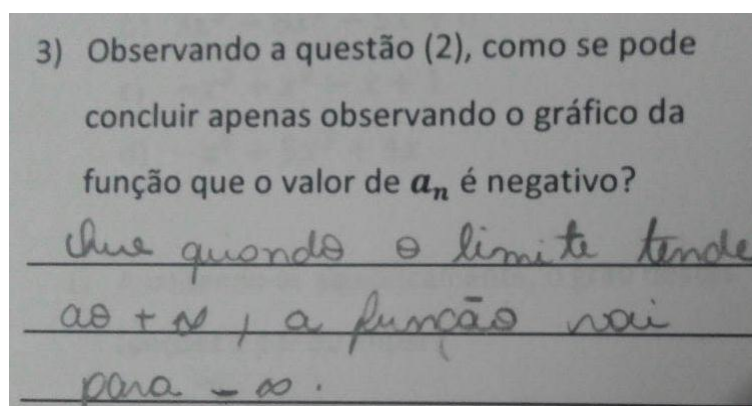 3) Observando a questão (2), como se pode
concluir apenas observando o gráfico da
função que o valor de aₙ é negativo?
Que quando o limite tende
ao + ∞, a função vai
para - ∞.